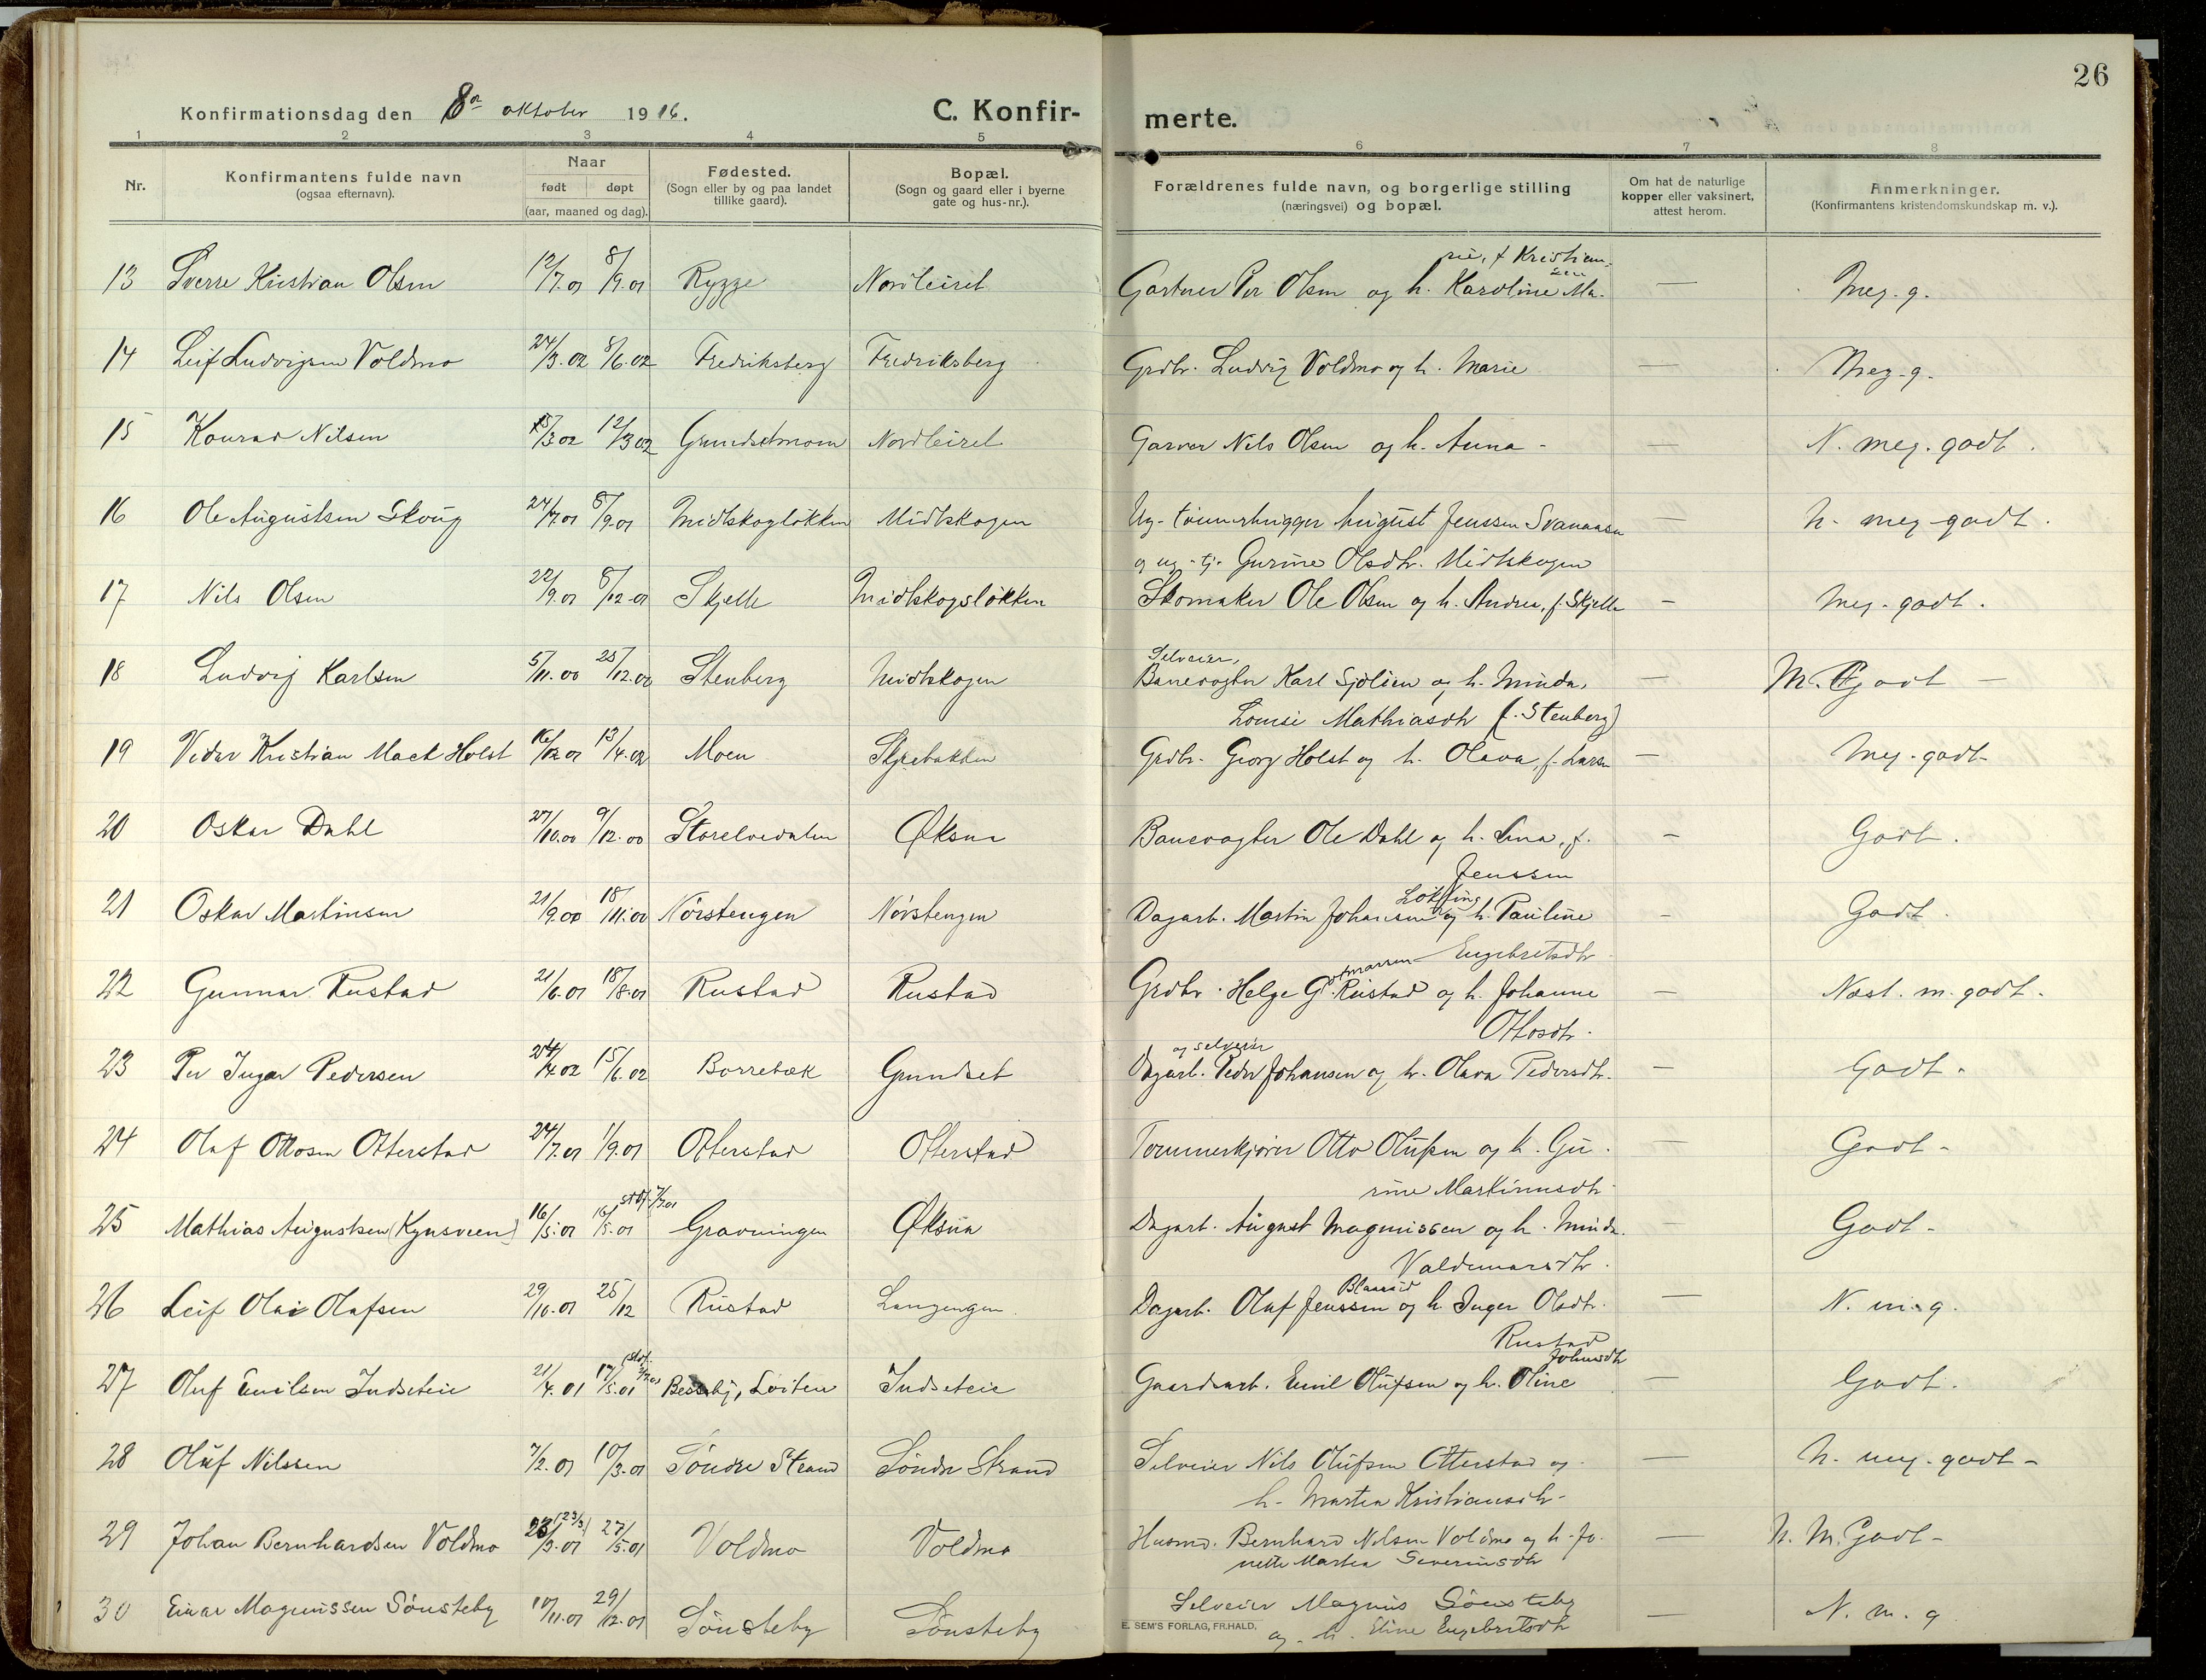 26
Konfirmationsdag den 8de oktober 1916. C. Konfir-merte.
1 2 3 4 5 6 7 8
Nr. Konfirmantens fulde navn (ogsaa efternavn). Naar født døpt (aar, maaned og dag). Fødested. (Sogn eller by og paa landet tillike gaard). Bopæl. (Sogn og gaard eller i byerne gate og hus-nr.). Forældrenes fulde navn, og borgerlige stilling (næringsvei) og bopæl. Om hat de naturlige kopper eller vaksinert, attest herom. Anmerkninger. (Konfirmantens kristendomskundskap m. v.).
rie, f Kristian-
sen
13 Sverre Kristian Olsen 12/7.01 8/9.01 Rygge Nordleiret Gartner Per Olsen og h. Karoline Ma- — Meg. g.
14 Leif Ludvigsen Voldmo 24/3.02 8/6.02 Fredriksberg Fredriksberg Grdbr. Ludvig Voldmo og h. Marie — Meg. g.
15 Konrad Nilsen /3 02 12/3 02 Grundsetmoen Nordleiret Garver Nils Olsen og h. Anna - — N. meg. godt.
16 Ole Augustsen Skoug 24/7.01 8/9.01 Midtskogløkken Midtskogen Ug. tømmerhugger August Jenssen Svanaasen — N. meg. godt.
og ug. tj. Gurine Olsdtr. Midtskogen
17 Nils Olsen 22/9.01 8/12.01 Skjelle Midtskogsløkken Skomaker Ole Olsen og h. Andrea, f. Skjelle — Meg. godt.
Selveier,
18 Ludvig Karlsen 5/11.00 25/12.00 Stenberg Midtskogen Banevogter Karl Sjølien og h. Minda, — M. Godt —
Lovise Mathiasdtr (f. Stenberg)
19 Vidar Kristian Mack Holst 16/12 01 13/4.02 Moen Skjrebakken Grdbr. Georg Holst og h. Olava, f. Larsen — Meg. godt-
20 Oskar Dahl 27/10.00 9/12.00 Storelvedalen Øksna Banevogter Ole Dahl og h. Lina, f. — Godt.
Jenssen
Løkting
21 Oskar Martinsen 21/9.00 18/11.00 Nørstengen Nørstengen Dagarb. Martin Johansen og h. Pauline — Godt.
Engebretsdtr
22 Gunnar Rustad 21/6.01 18/8.01 Rustad Rustad Grdbr. Helge G. Rustad og h. Johanne — Næst. m. godt.
Ottosdtr.
og selveier
23 Per Ingar Pedersen 24/4.02 15/6.02 Borrebæk Grundset Dagarb. Peder Johansen og h. Olava Pedersdtr. — Godt.
24 Olaf Ottosen Otterstad 24/7.01 1/9.01 Otterstad Otterstad Tømmerkjører Otto Olufsen og h. Gu- — Godt-
rine Martinusdtr
stdf. 7/7.01
25 Mathias Augustsen (Kynsveen) 16/5.01 16/5.01 Gravningen Øksna Dagarb. August Magnussen og h. Minda — Godt-
Valdemarsdtr.
26 Leif Olai Olafsen 29/10.01 25/12 Rustad Langengen Dagarb. Oluf Jenssen og h. Inger Olsdtr. — N. m. g.
Rustad
Johnsdtr
27 Oluf Emilsen Indseteie 21/4.01 17/5.01 Løiten Indseteie Gaardsarb. Emil Olufsen og h. Oline — Godt.
28 Oluf Nilssen 7/2.01 10/3.01 Søndre Strand Søndre Strand Selveier Nils Olufsen Otterstad og — N. meg. godt-
h. Martea Kristiansdtr-
29 Johan Bernhardsen Voldmo 23/3.01 (23/3) 27/5.01 Voldmo Voldmo Husmd. Bernhard Nilsen Voldmo og h. Jo- — N. M. Godt-
nette Martea Severinsdtr
30 Einar Magnussen Sønsteby 10/11.01 29/12.01 Sønsteby Sønsteby Selveier Magnus Sønsteby — N. m. g
og h. Eline Engebretsdtr
E. SEM'S FORLAG, FR.HALD.